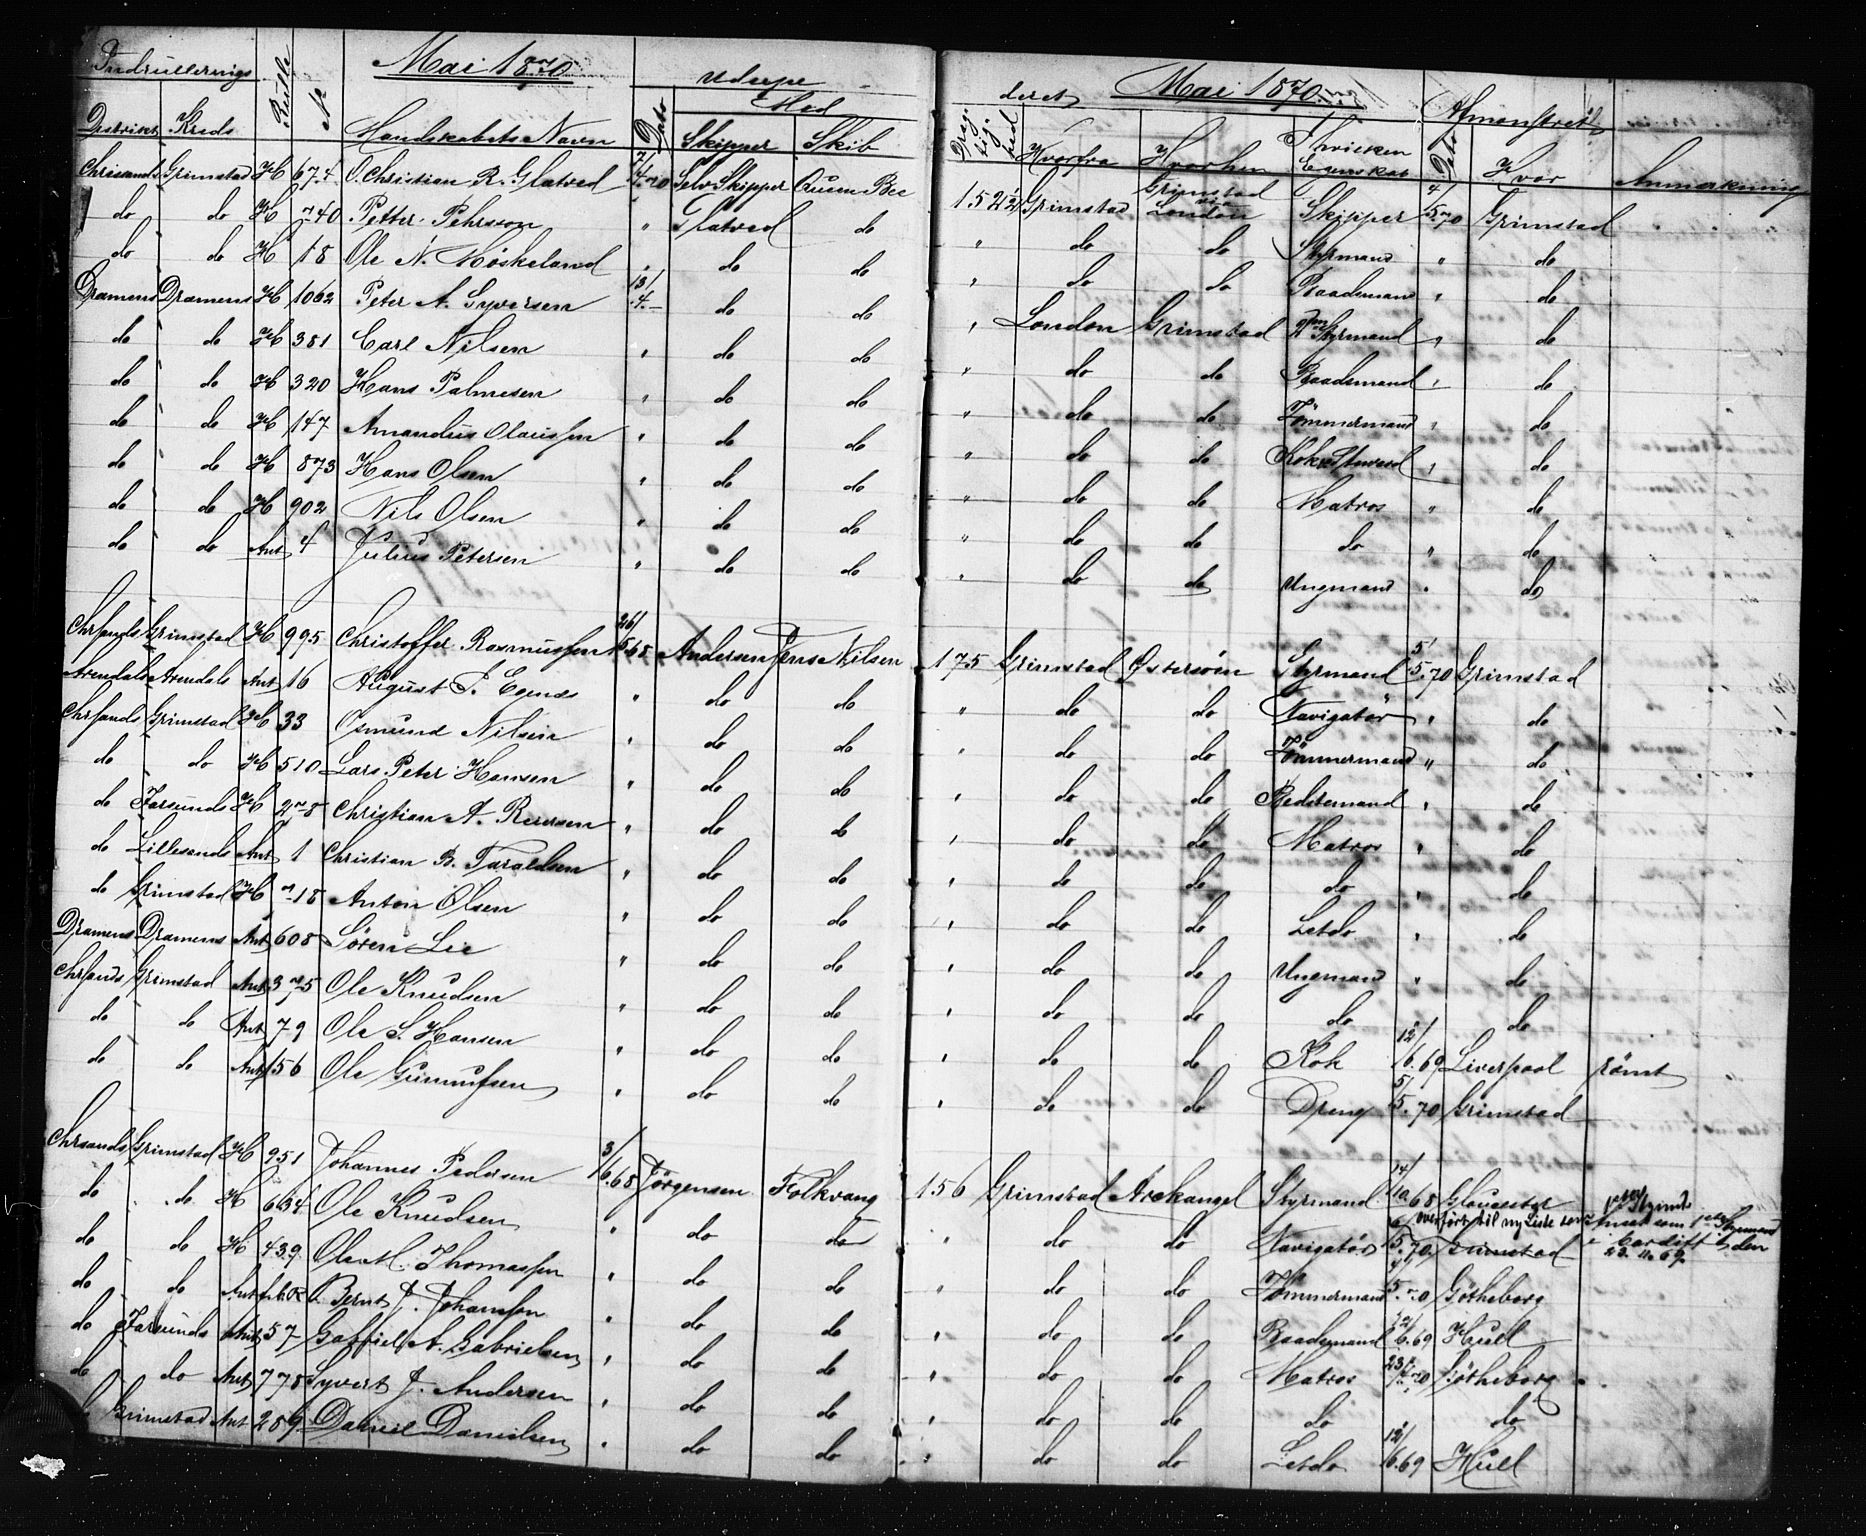 Mai 1870 Mai 1870
Indrullerings Rulle № Udreise deret Afmønstret
Distrikt Kreds Mandskabets Navn Dato Med Skipper Skib Drægtighed Hvorfra Hvorhen Hvilken Egenskab Dato Hvor Anmærkning
Christiands Grimstad H 674 O. Christian R. Glatved 7/4.70 Selv Skipper Queen Bee 152 2½ Grimstad Grimstad via London Skipper 4/5.70 Grimstad
do do H 740 Petter Pehrsson " Glatved do " do do Styrmand " do
do do H 18 Ole N. Høskeland " do do " do do Baadsmand " do
Dramens Dramens H 1062 Peter A. Syversen 13/4.- do do " London Grimstad 2den Styrmand " do
do do H 381 Carl Nilsen " do do " do do Baadsmand " do
do do H 320 Hans Palmesen " do do " do do Tømmermand " do
do do H 147 Amandus Olaussen " do do " do do Kok & Steward " do
do do H 873 Hans Olsen " do do " do do Matros " do
do do H 902 Nils Olsen " do do " do do do " do
do do Ant 4 Julius Petersen " do do " do do Ungmand " do
Chrsands Grimstad H 995 Christoffer Rasmussen 26/5.68 Andersen Jens Nilsen 175 Grimstad Østersøen Styrmand 5/5.70 Grimstad
Arendals Arendals Ant 16 August S. Egenæs " do do " do do Navigatør " do
Chrsands Grimstad H 33 Osmund Nilsen " do do " do do Tømmermand " do
do do H 510 Lars Peter Hansen " do do " do do Bedstemand " do
do Farsunds H 278 Christian A. Reiersen " do do " do do Matros " do
do Lillesands Ant 1 Christian B. Taraldsen " do do " do do do " do
do Grimstad H 718 Anton Olsen " do do " do do Letdo " do
Dramens Dramens Ant 608 Søren Lie " do do " do do Ungmand " do
Chrsands Grimstad Ant 375 Ole Knudsen " do do " do do do do
do do Ant 79 Ole S. Hansen " do do " do do Kok 12/6.69 Liverpool rømt
do do Ant 156 Ole Gunnufsen " do do " do do Dreng 5/5.70 Grimstad
Chrsands Grimstad H 951 Johannes Pedersen 3/6.68 Jørgensen Folkvang 156 Grimstad Arckangel Styrmand 14/10.68 Gloucester
do do H 634 Ole Knudsen " do do " do do Navigatør 6/5.70 Grimstad overført til ny Liste som 1ste Styrmand i Cardiff den 23.11.69
do do H 439 Ole M. Thomassen " do do " do do Tømmermand 5.70 Gøtheborg
do do Ant Bernt J. Johansen " do do " do do Baadsmand 12/6.69 Hull
do Farsunds Ant 57 Gabriel A. Gabrielsen " do do " do do Matros Gøtheborg
do do Ant 778 Syvert J. Andersen " do do " do do do do
Grimstad Ant 289 Daniel Danielsen " do do " do do Letdo 12/6.69 Hull